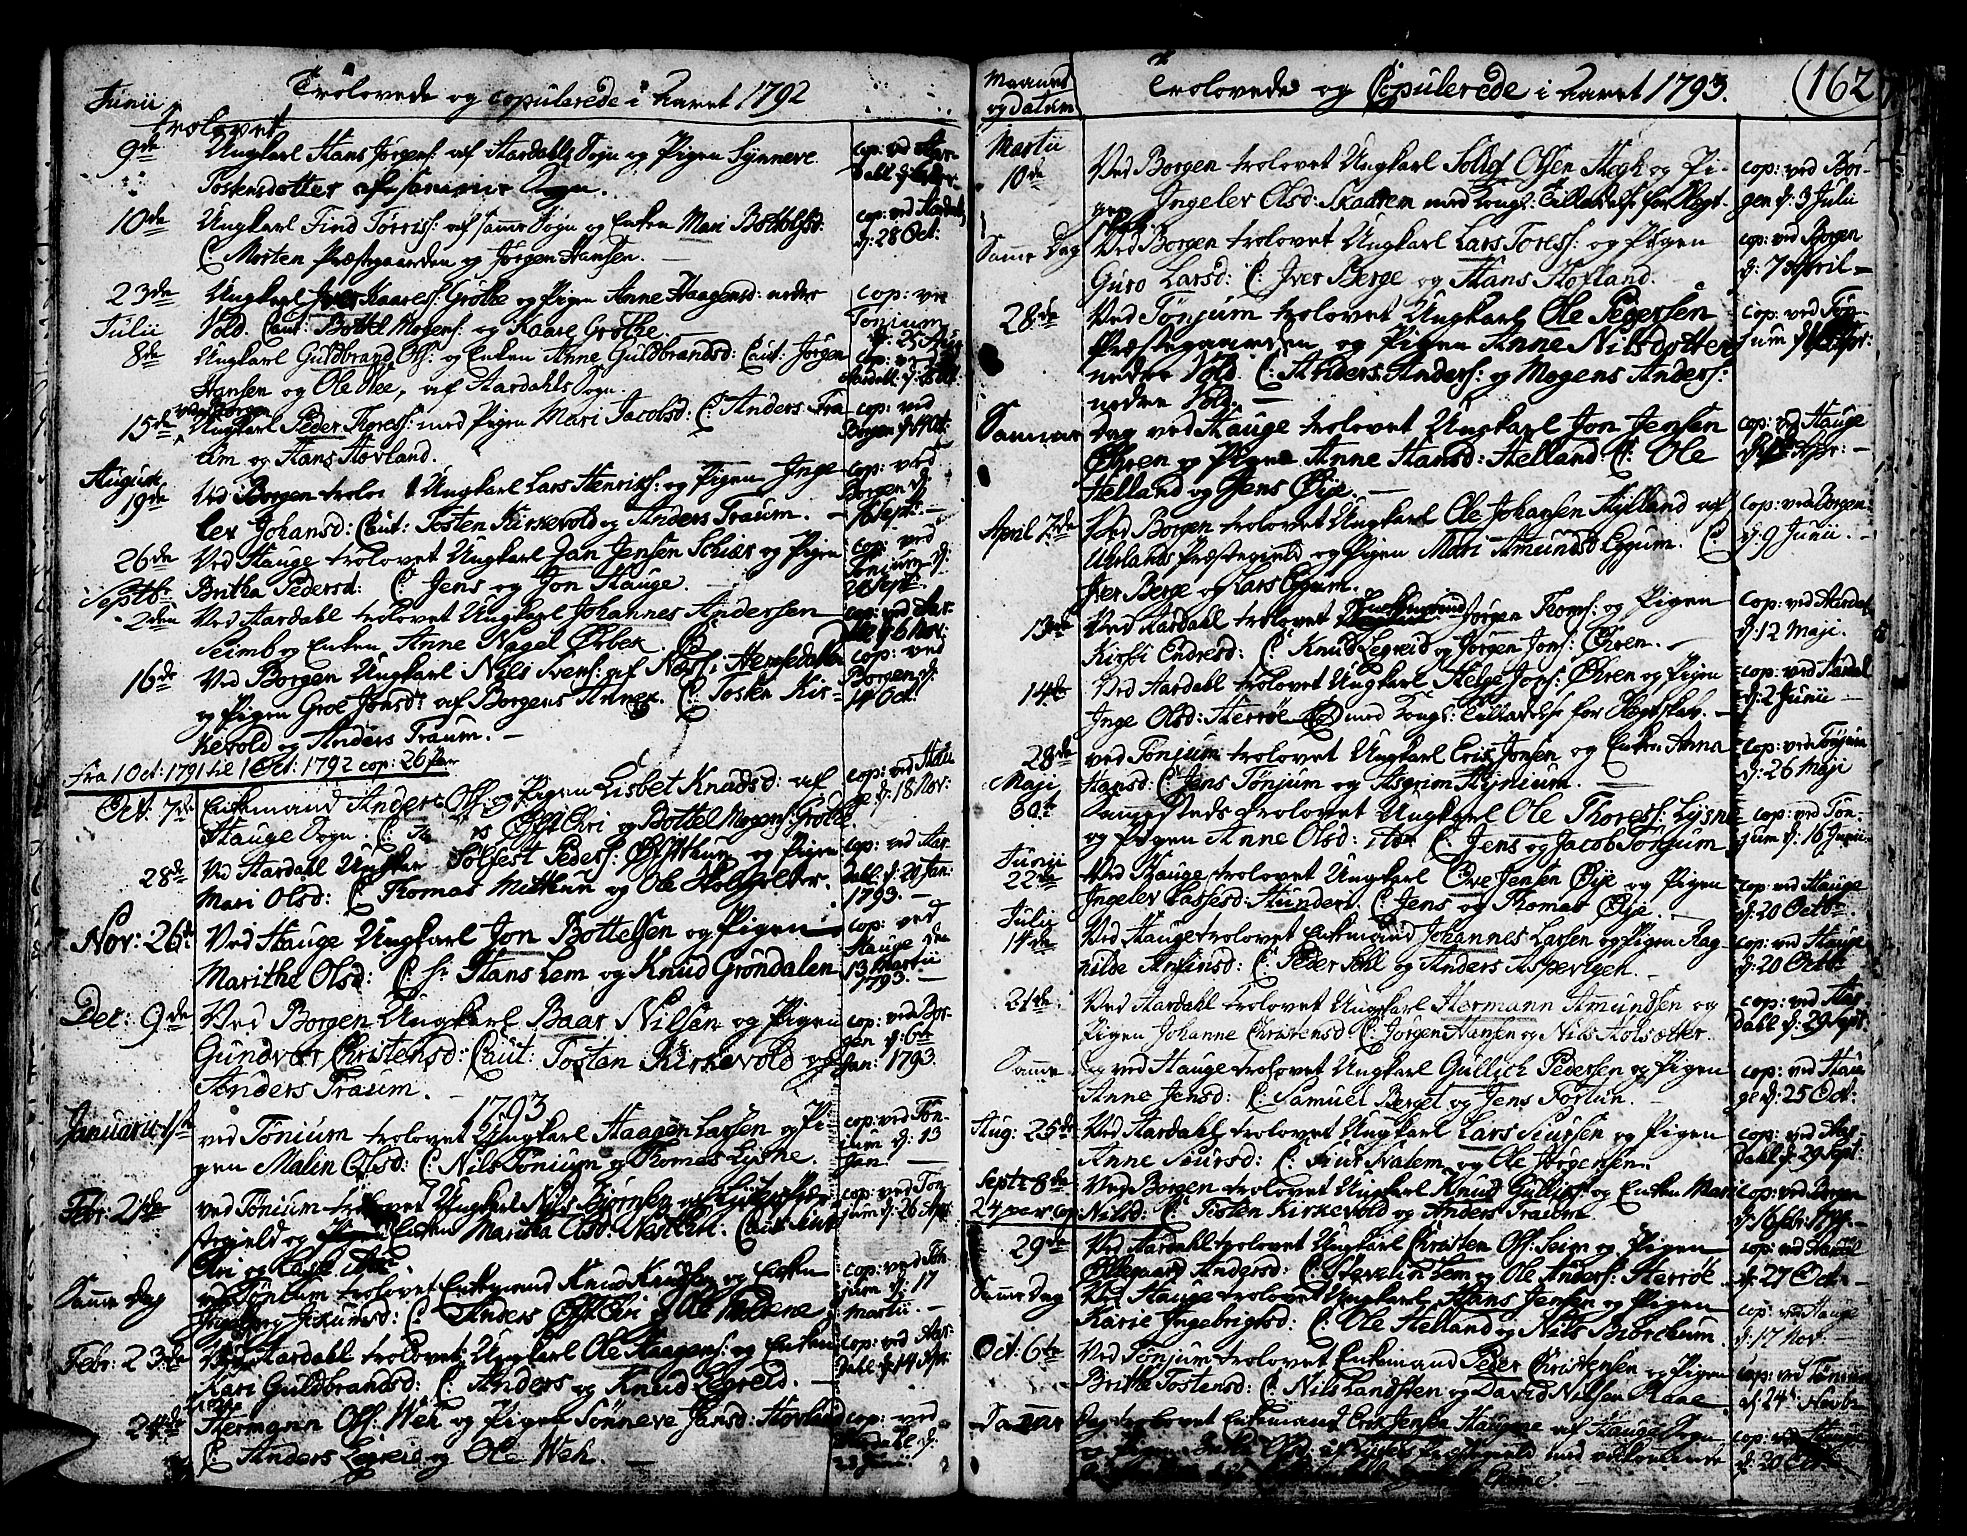 Trolovede og copulerede i Aaret 1792
Junii
trolovet
9de Ungkarl Hans Jørgens: af Aardahls Sogn og Pigen Synneve
Tostensdotter af samme Sogn.
cop: ved Aar-
dahl d:
10de Ungkarl Find Tørris: af samme Sogn og Enken Mari Bottolfsd:
C: Morten Præstegaarden og Jørgen Hansen.
cop: ved Aardahl
d: 28 Oct:
23de Ungkarl Iver Kaares: Grøthe og Pigen Anne Haagensd: nedre
Vold. Caut: Bottel Mogens: og Kaare Grøthe.
cop: ved
Tønium
Julii
8de Ungkarl Guldbrand Ols: og Enken Anne Guldbrandsd: Caut: Jørgen
Hansen og Ole Vee, af Aardahls Sogn.
cop: ved
Aardahl d:
15de ved Borgen
Ungkarl Peder Thoress: med Pigen Mari Jacobsd: C: Anders Tra
um og Hans Hovland.
cop: ved
Borgen d: Oct:
August
19de Ved Borgen trolovet Ungkarl Lars Henriks: og Pigen Inge
ler Johansd: Caut: Tosten Kirkevold og Anders Traum.
cop: ved
Borgen d:
16 Sept:
26de Ved Hauge trolovet Ungkarl Jan Jensen Schiær og Pigen
Britha Pedersd: C: Jens og Jon Hauge.
cop: ved
Tønium d:
Sept:
Septbr
2den Ved Aardahl trolovet Ungkarl Johannes Andersen
Seimb og Enken Anne Nagel Ørbek
cop: ved Aar-
d: 6 Nov:
16de Ved Borgen Ungkarl Nils Svens: af Næss: Hemsedalen
og Pigen Groe Jonsd: af Borgens Annex. C: Tosten Kir-
kevold og Anders Traum.
cop: ved
Borgen d:
14 Oct:
Fra 1 Oct: 1791 til 1 Oct: 1792 cop: 26 par
Oct: 7de Enkemand Anders Ols: og Pigen Lisbet Knudsd: af
Hauge Sogn. C: Øst Eri og Bottel Mogens: Grøthe
cop: ved Hau
ge d: 18 Nov:
28de Ved Aardahl Ungkar Solfest Peders: Øst Mithun og Pigen
Mari Olsd: C: Thomas Mithun og Ole Hølsæter.
cop: ved Aar-
dahl d: 20 Jan:
1793.
Nov: 26de Ved Hauge Ungkarl Jon Bottelsen og Pigen
Maritha Olsd: C: Hr Hans Lem og Knud Grøndalen
cop: ved
Hauge
13 Martii
1793.
Dec: 9de Ved Borgen Ungkarl Baar Nilsen og Pigen
Gundvor Christensd: Caut: Tostan Kirkevold og
Anders Traum.
cop: ved Bor-
gen d: 6te
Jan: 1793.
1793
Januarii 1ste ved Tønium trolovet Ungkarl Haagen Larsen og Pi-
gen Malin Olsd: C: Nils Tønium og Thomas Lysne.
cop: ved Tøn-
ium d: 13
Jan:
Febr: 21de ved Tønium trolovet Ungkarl Nils Bjørnsen af
giæld og Enken Maritha Olsd:
Eri og Lasse
cop: ved Ton-
jum d: 26 Apr:
Samme Dag ved Tønium trolovet Enkemand Knud Knudsen og Enken
Ingeborg Jokumsd: C: Anders Øst Eri og Ole Mældene
cop: ved Ton-
jum d: 17
Martii.
Febr: 23de Ved Aardahl trolovet Ungkarl Ole Haagens: og Enken
Kari Guldbrandsd: C: Anders og Knud Legreid.
cop: ved Aar-
dahl d: 14 Apr:
24de Hermann Ols: Weh og Pigen Sønneve Jansd: Hovland
C: Anders Legreid og Ole Weh.
cop: ved
Aardahl d:
23 Junii
Trolovede og Copulerede i Aaret 1793.
(162
Maaned
og datum
Martii
10de Ved Borgen trolovet Ungkarl Sollef Olsen Hogh og Pi-
gen Ingeler Olsd: Skaarem med Kongl: Tilladelse for Slægt-
skab:
cop: ved Bor-
gen d: 3 Julii
Samme Dag Ved Borgen trolovet Ungkarl Lars Toress: og Pigen
Guro Larsd: C: Iver Berge og Hans Hofland.
cop: ved Borgen
d: 7 April
28de Ved Tønjum trolovet Ungkarl Ole Pedersen
Præstegaarden og Pigen Anne Nilsdotter
nedre Vold. C: Anders Anders: og Mogens Anders:
nedre Vold.
cop: ved Tøn-
jum d: Apr:
Samme
dag ved Hauge trolovet Ungkarl Jon Jensen
Øhren og Pigen Anne Hansd: Helland C: Ole
Helland og Jens Øye.
cop: ved Hauge
d: Apr:
April 7de Ved Borgen trolovet Ungkarl Ole Johansen Hylland af
Urlands Præstegield og Pigen Mari Amundsd Eggum. C
Iver Berge og Lars Eggum.
cop: ved Borgen
d: 9 Junii.
13de Ved Aardahl trolovet Enkemand Jørgen Thoms: og Pigen
Kirsti Endresd: C: Knud Legreid og Jørgen Jons: Øhren.
cop: ved Aardal
d: 12 Maji.
14de Ved Aardahl trolovet Ungkarl Helge Jons: Øhren og Pigen
Inge Olsd: Herrøe med Kongl: Tilladelse for Slægtskab.
cop: ved Aardal
d: 2 Junii
28de ved Tønjum trolovet Ungkarl Eris Jonsen og Enken Anna
Hansd: C: Jens Tønjum og Asgrim Hynium.
cop: ved Tønjum
d: 26 Maji
Maji
sammesteds trolovet Ungkarl Ole Thoress: Lysne
og Pigen Anne Olsd: C: Jens og Jacob Tønjum
cop: ved Tøn-
jum d: 16 Junii
Junii
22de Ved Hauge trolovet Ungkarl Ove Jensen Øye og Pigen
Ingeler Lassesd: Hunderi C: Jens og Thomas Øye.
cop: ved Hauge
d: 20 Octbr.
Julii
14de Ved Hauge trolovet Enkemand Johannes Larsen og Pigen Rag-
nilde Anfinsd: C: Peder Hihl og Anders Aspevigen.
cop: ved Hauge
d: 20 Octbr
21de Ved Aardahl trolovet Ungkarl Hermann Amundsen og
Pigen Johanne Christensd: C: Jørgen Hansen og Nils Holsæter.
cop: ved Aar-
dahl d: 29 Sept:
Samme Dag ved Hauge trolovet Ungkarl Gullich Pedersen og Pigen
Anne Jensd: C: Samuel Berget og Jens Fortun.
cop: ved Hau
ge d: 25 Oct:
Aug: 25de Ved Aardahl trolovet Ungkarl Lars Siursen og Pigen
Anne Siursd: C: Siur Nalem og Ole Jørgensen.
cop: ved Aar-
dahl d: 29 Sept:
Septr 8de Ved Borgen trolovet Ungkarl Knud Gullics: og Enken Mari
Nilsd: C: Tosten Kirkevold og Anders Traum
cop: ved Borgen
24 par cop:
29de Ved Aardahl trolovet Ungkarl Christen Ols: Seim og Pigen
Oldegaard Andersd: C: Stevelin Lem og Ole Anders: Herrøe
cop: ved Aardal
d: 27 Oct:
Samme Dag Ved Hauge trolovet Ungkarl Hans Jensen og Pigen
Karie Ingebrigtsd: C: Ole Helland og Nils Biørchum.
cop: ved Hauge
d: 17 Nov:
Oct: 6te Ved Tønjum trolovet Enkemand Peder Christensen og Pigen
Brithe Tostensd: C: Nils Landsten og David Nilsen Rane.
cop: ved Tønium
d: 24 Novbr
Samme Dag trolovet Enkemand Erik Jensen Haugene af Hauge Sogn
og Pigen
cop: ved Hauge
d: 20 Oct: